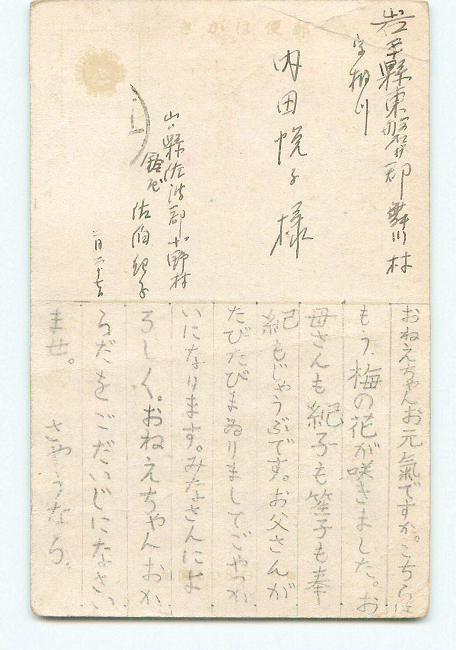 郵便はがき
岩手縣東磐井郡舞川村
字相川
内田悦子様
山口縣佐波郡小野村
鈴屋
佐伯紀子
二月二十七日
おねえちゃんお元氣ですか。こちらは
もう、梅の花が咲きました。お
母さんも紀子も笙子も奉
紀もじゃうぶです。お父さんが
たびたびまゐりましてごやっか
いになります。みなさんによ
ろしく。おねえちゃんおか
らだをごだいじになさい
ませ。
さやうなら、